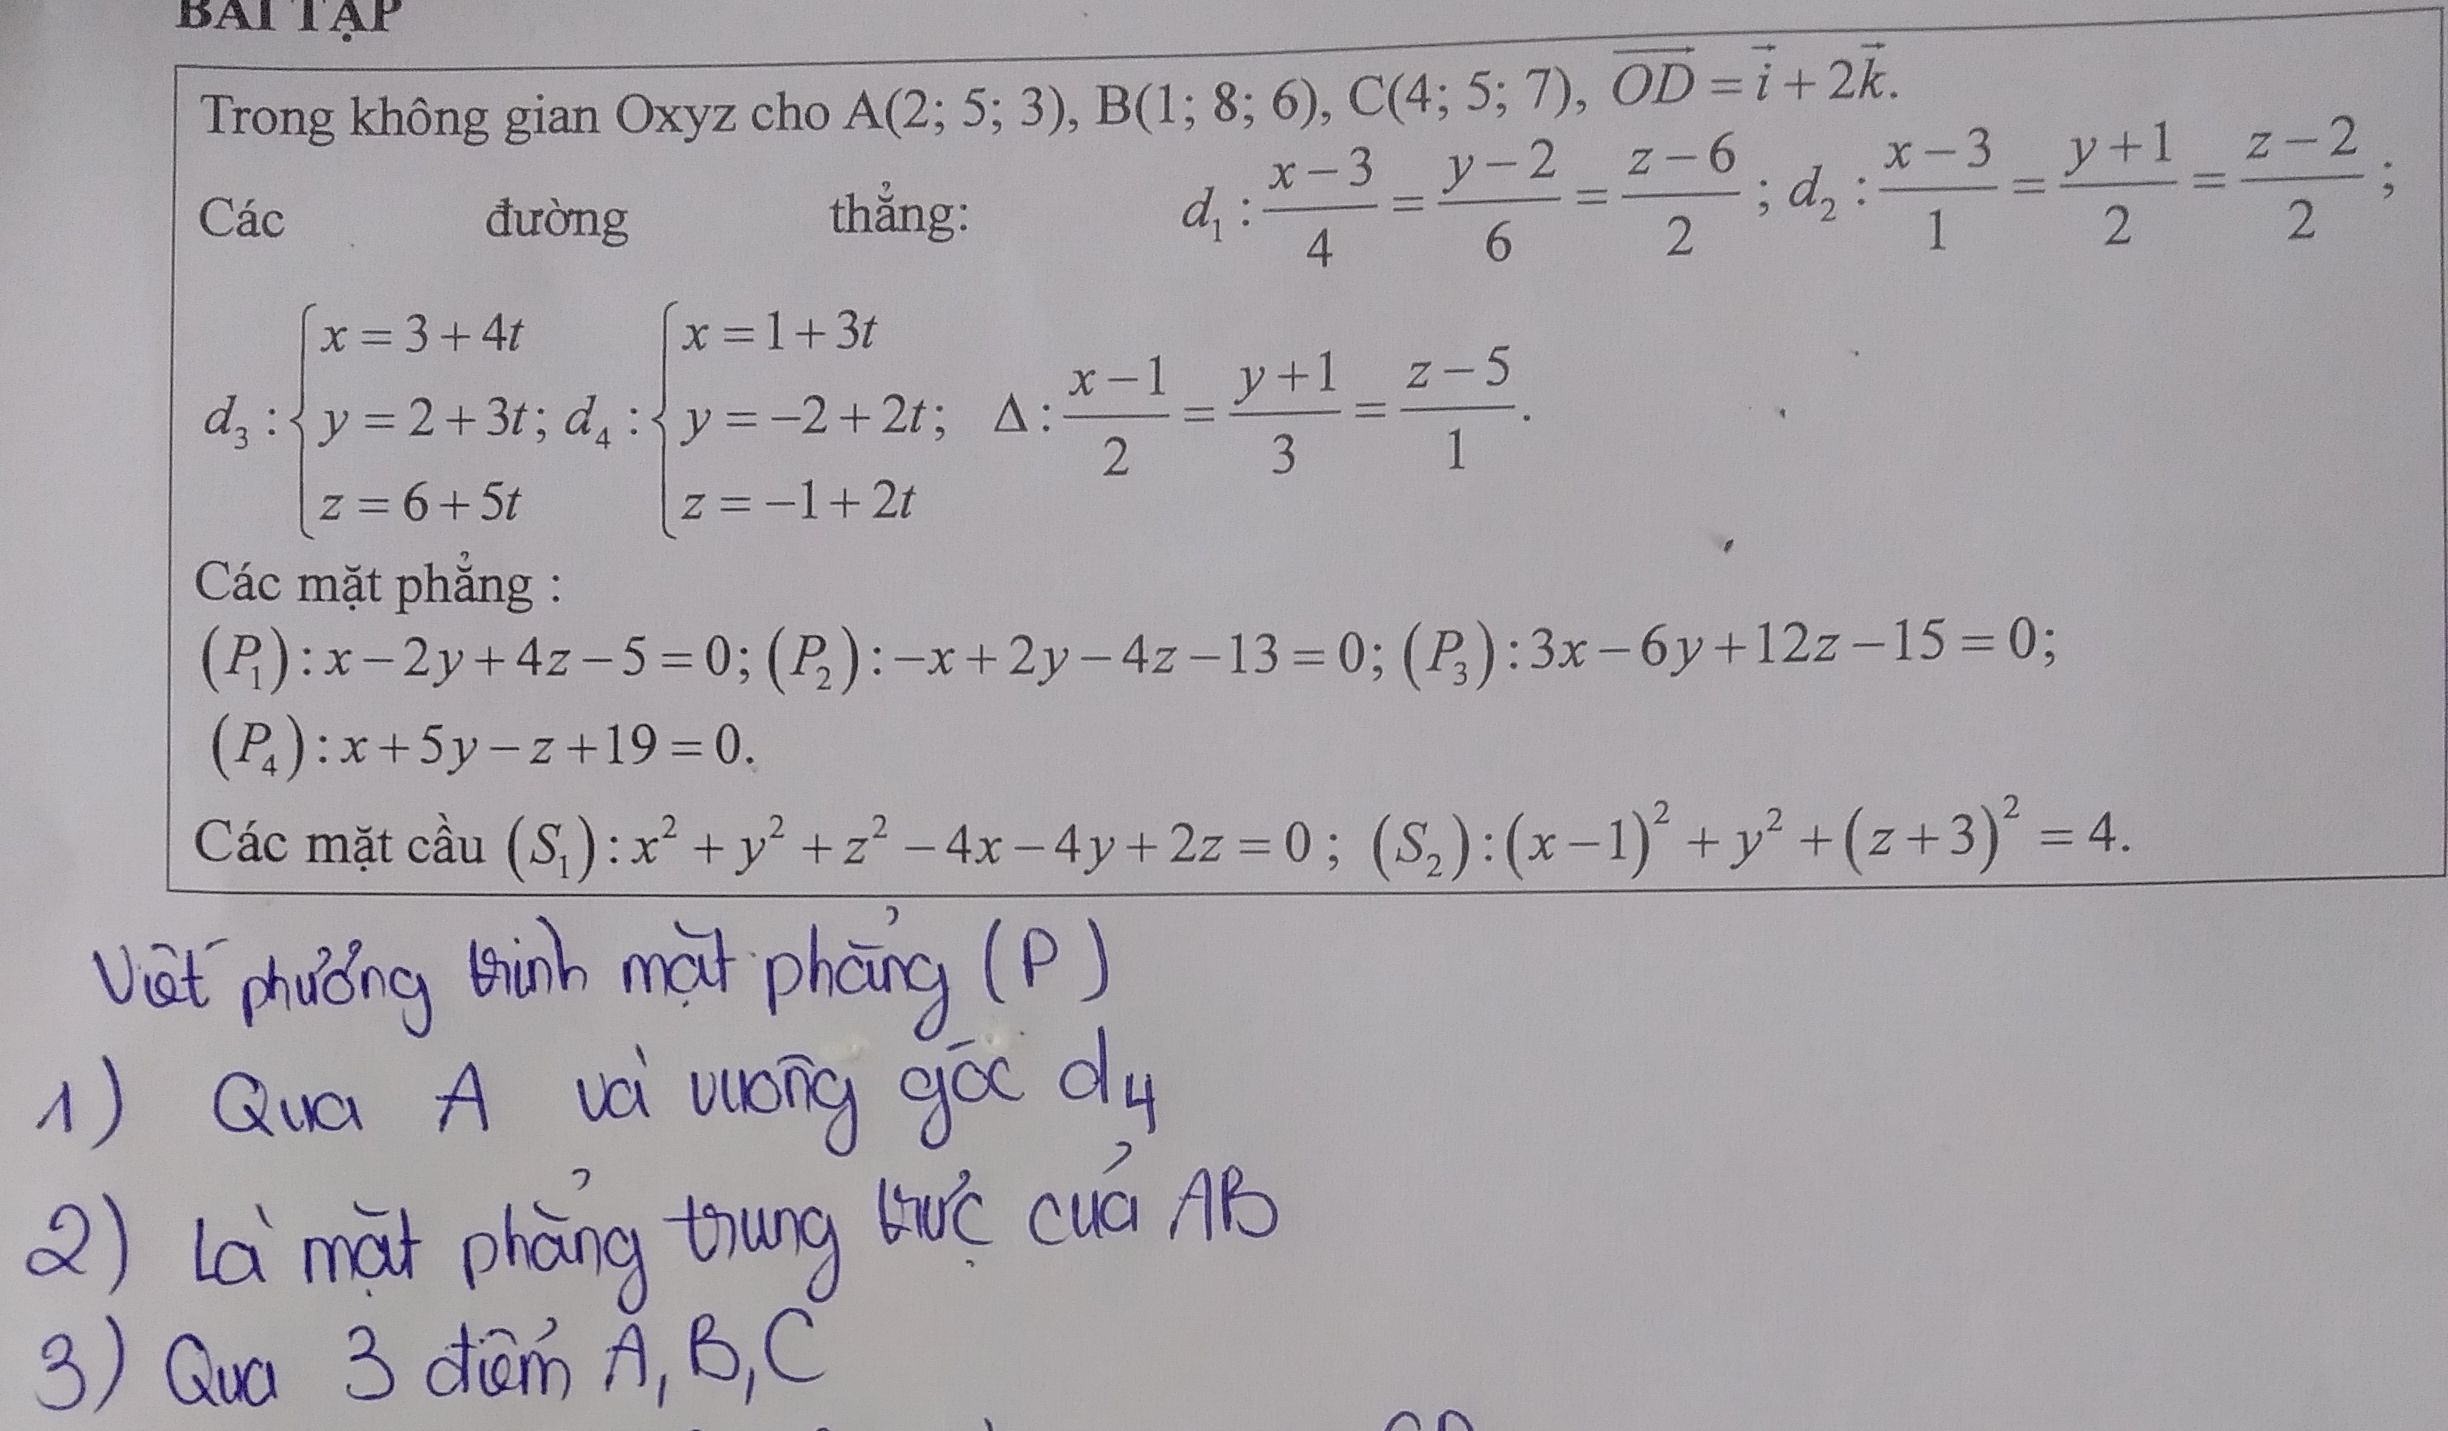 BÀI TẬP
Trong không gian Oxyz cho A(2; 5; 3), B(1; 8; 6), C(4; 5; 7), $\overrightarrow{OD} = \vec{i} + 2\vec{k}$.
Các đường thẳng: $d_1: \frac{x-3}{4} = \frac{y-2}{6} = \frac{z-6}{2}$; $d_2: \frac{x-3}{1} = \frac{y+1}{2} = \frac{z-2}{2}$;
$d_3: \begin{cases} x = 3+4t \\ y = 2+3t \\ z = 6+5t \end{cases}$; $d_4: \begin{cases} x = 1+3t \\ y = -2+2t \\ z = -1+2t \end{cases}$; $\Delta: \frac{x-1}{2} = \frac{y+1}{3} = \frac{z-5}{1}$.
Các mặt phẳng :
$(P_1): x-2y+4z-5=0$; $(P_2): -x+2y-4z-13=0$; $(P_3): 3x-6y+12z-15=0$;
$(P_4): x+5y-z+19=0$.
Các mặt cầu $(S_1): x^2+y^2+z^2-4x-4y+2z=0$; $(S_2): (x-1)^2+y^2+(z+3)^2=4$.
Viết phương trình mặt phẳng (P)
1) Qua A và vuông góc d4
2) Là mặt phẳng trung trực của AB
3) Qua 3 điểm A, B, C